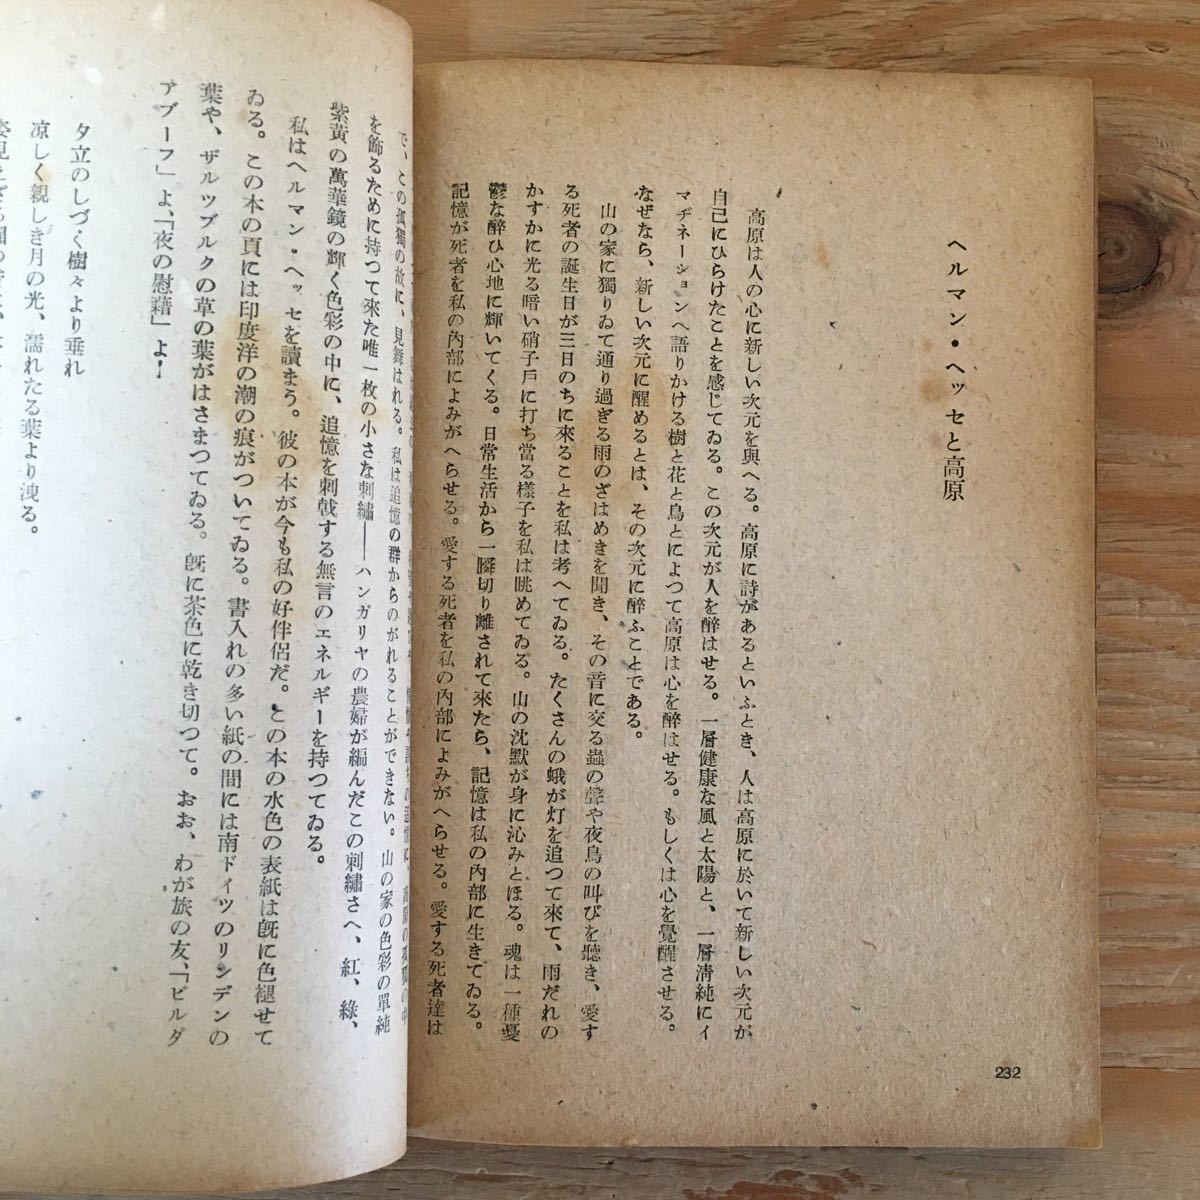 ヘルマン・ヘッセと高原
高原は人の心に新しい次元を與へる。高原に詩があるといふとき、人は高原に於いて新しい次元が
自己にひらけたことを感じてゐる。この次元が人を醉はせる。一層健康な風と太陽と、一層淸純にイ
マヂネーションへ語りかける樹と花と鳥とによつて高原は心を醉はせる。もしくは心を覺醒させる。
なぜなら、新しい次元に醒めるとは、その次元に醉ふことである。
山の家に獨りゐて通り過ぎる雨のざはめきを聞き、その音に交る蟲の聲や夜鳥の叫びを聽き、愛す
る死者の誕生日が三日のちに來ることを私は考へてゐる。たくさんの蛾が灯を追つて來て、雨だれの
かすかに光る暗い硝子戶に打ち當る樣子を私は眺めてゐる。山の沈默が身に沁みとほる。魂は一種憂
鬱な醉ひ心地に輝いてくる。日常生活から一瞬切り離されて來たら、記憶は私の內部に生きてゐる。
記憶が死者を私の內部によみがへらせる。愛する死者を私の內部によみがへらせる。愛する死者達は
232
で、この孤獨の故に、見舞はれる。私は追憶の群からのがれることができない。山の家の色彩の單純
を飾るために持つて來た唯一枚の小さな刺繡──ハンガリヤの農婦が編んだこの刺繡さへ、紅、綠、
紫黃の萬華鏡の輝く色彩の中に、追憶を刺戟する無言のエネルギーを持つてゐる。
私はヘルマン・ヘッセを讀まう。彼の本が今も私の好伴侶だ。この本の水色の表紙は旣に色褪せて
ゐる。この本の頁には印度洋の潮の痕がついてゐる。書入れの多い紙の間には南ドイツのリンデンの
葉や、ザルツブルクの草の葉がはさまつてゐる。旣に茶色に乾き切つて。おお、わが旅の友、「ビルダ
アブーフ」よ、「夜の慰藉」よ！
夕立のしづく樹々より垂れ
凉しく親しき月の光、濡れたる葉より洩る。